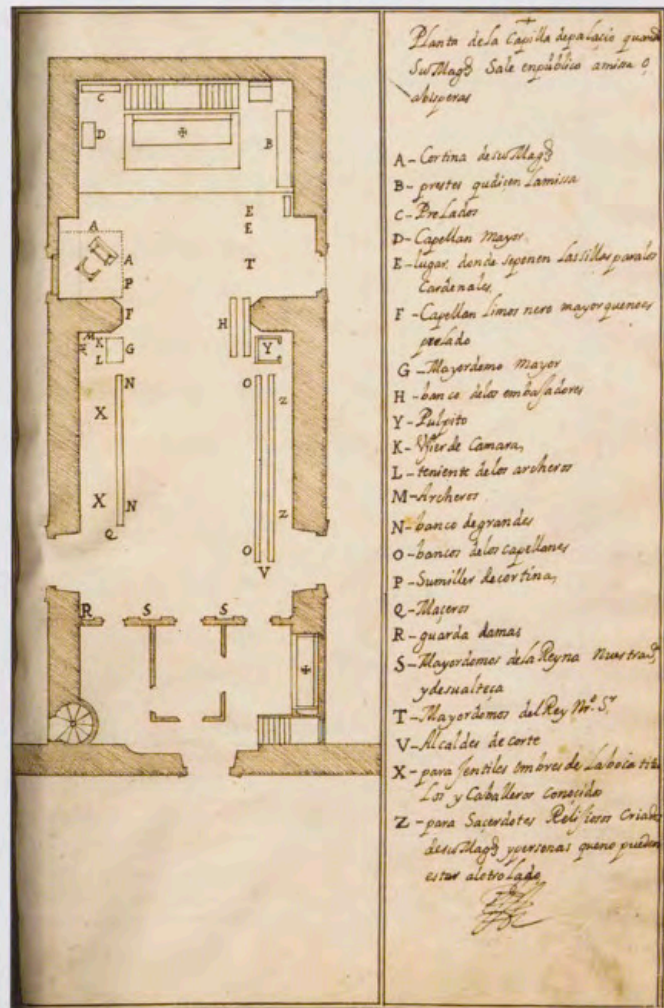 Planta de la Capilla de palacio quando
Su Magd Sale en público a missa o
a bisperas
A - Cortina de su Magd
B - prestes qu dicen La missa
C - PreLados
D - Capellan Mayor
E - lugar donde se ponen Las sillas para los
Cardenales
F - Capellan Limosnero mayor que no es
prelado
G - Mayordomo Mayor
H - banco de los embaSadores
Y - Pulpito
K - Vjier de Camara
L - teniente de los archeros
M - Archeros
N - banco de grandes
O - bancos de los capellanes
P - Sumiller de cortina
Q - Maçeros
R - guarda damas
S - Mayordomos de la Reyna Nuestra
y de su alteça
T - Mayordomos del Rey Nro. Sr
V - Alcaldes de corte
X - para Jentiles ombres de La boca
Los y Caballeros conoçidos
Z - para Saçerdotes Relijiosos Criados
de su Magd y personas que no pueden
estar al otro Lado
C
D
B
E
E
A
A
T
P
F
H
M
K
N
L
G
Y
N
O
Z
X
X
N
Z
Q
O
V
R
S
S